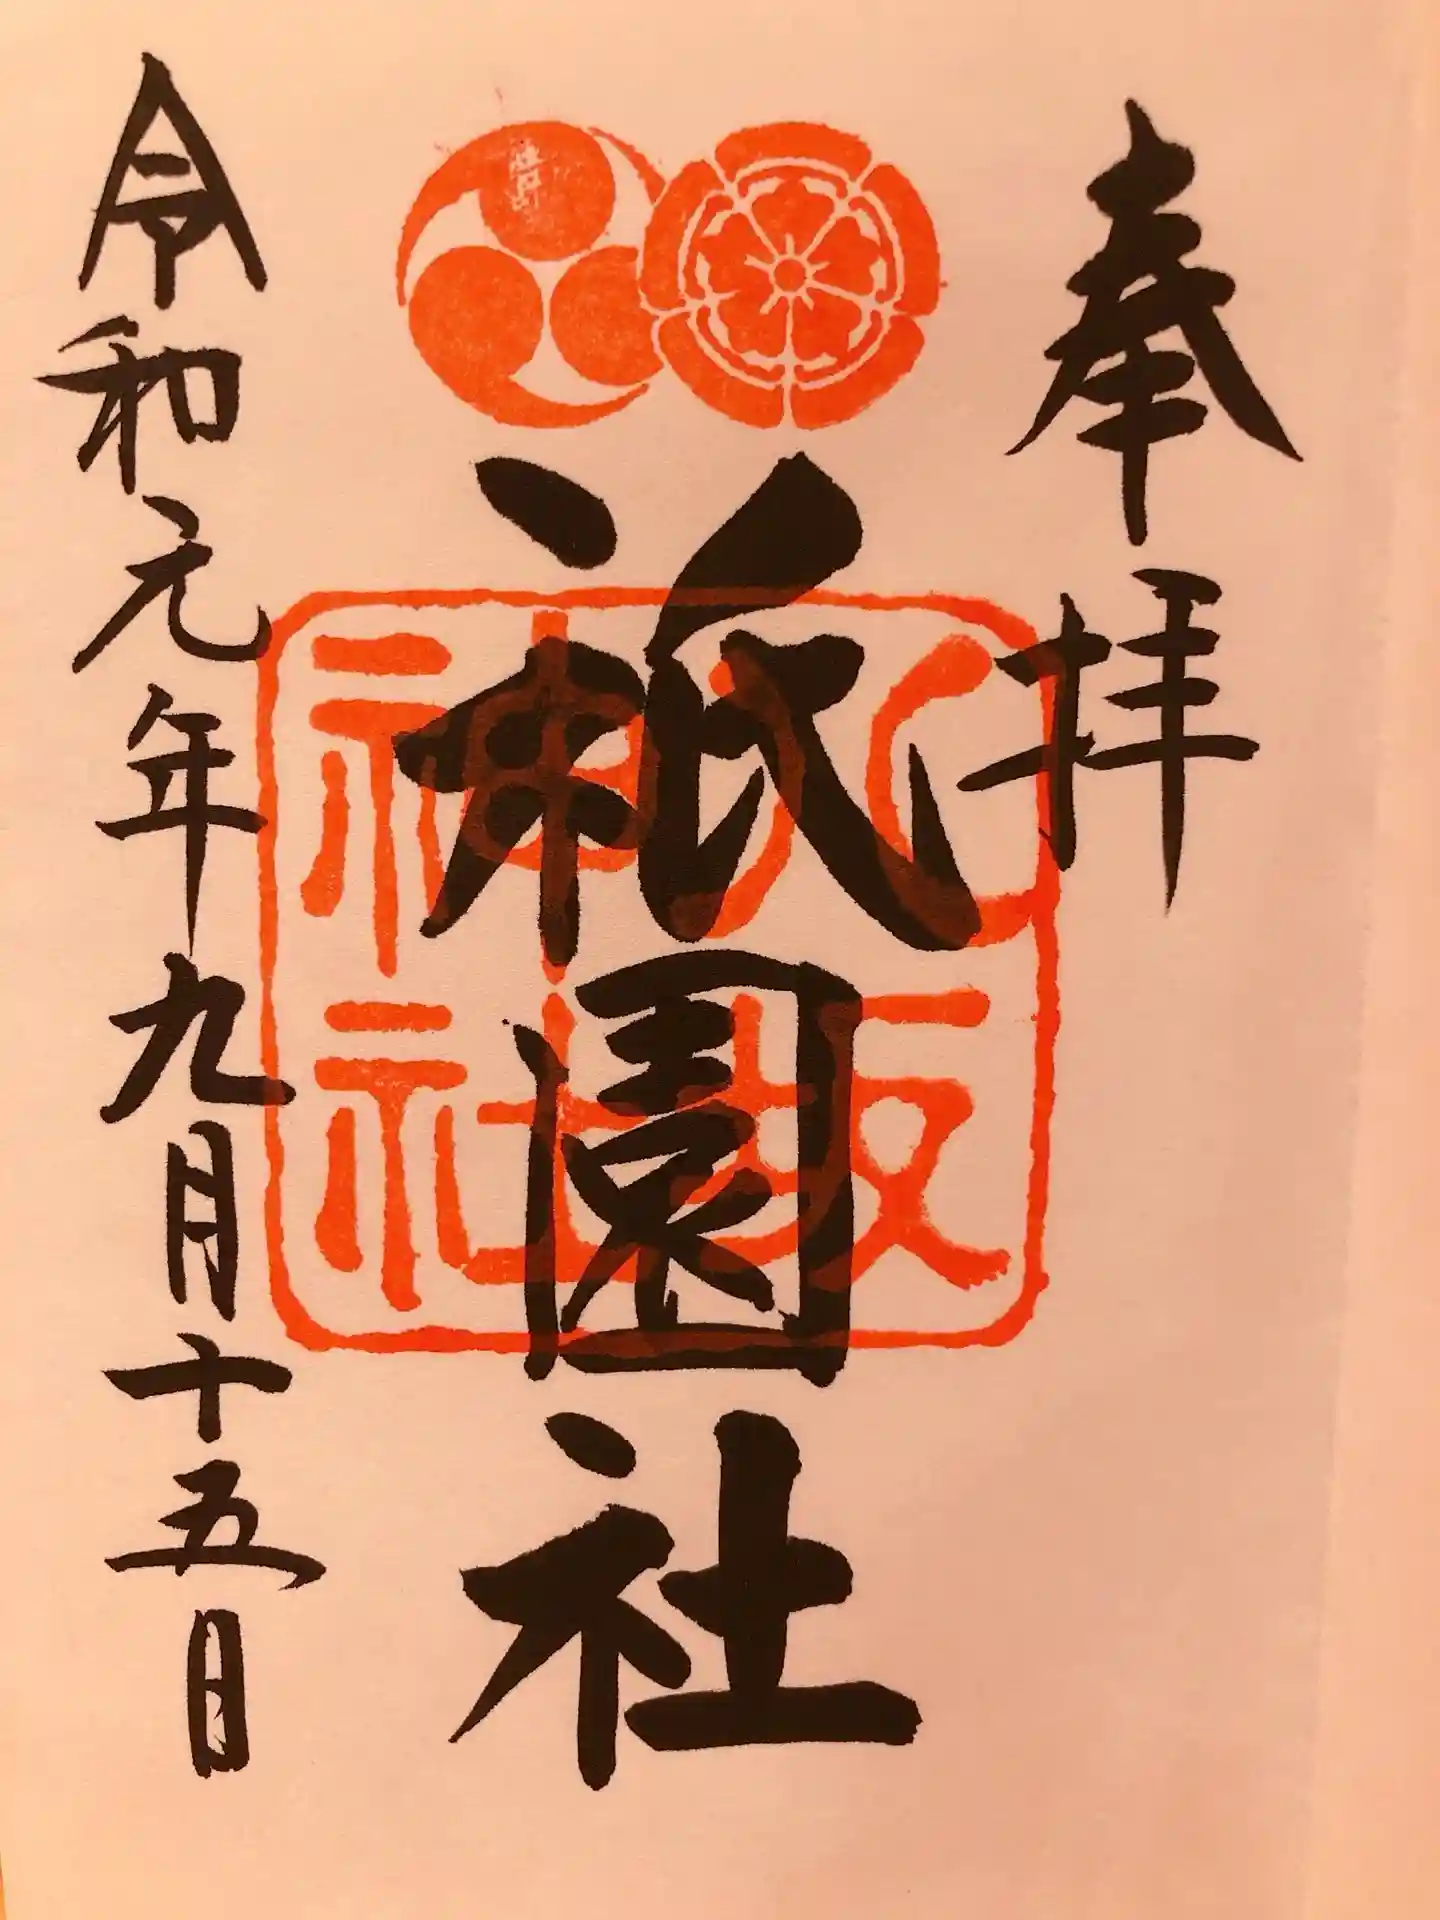 奉拝
祇園社
八坂
神社
令和元年九月十五日